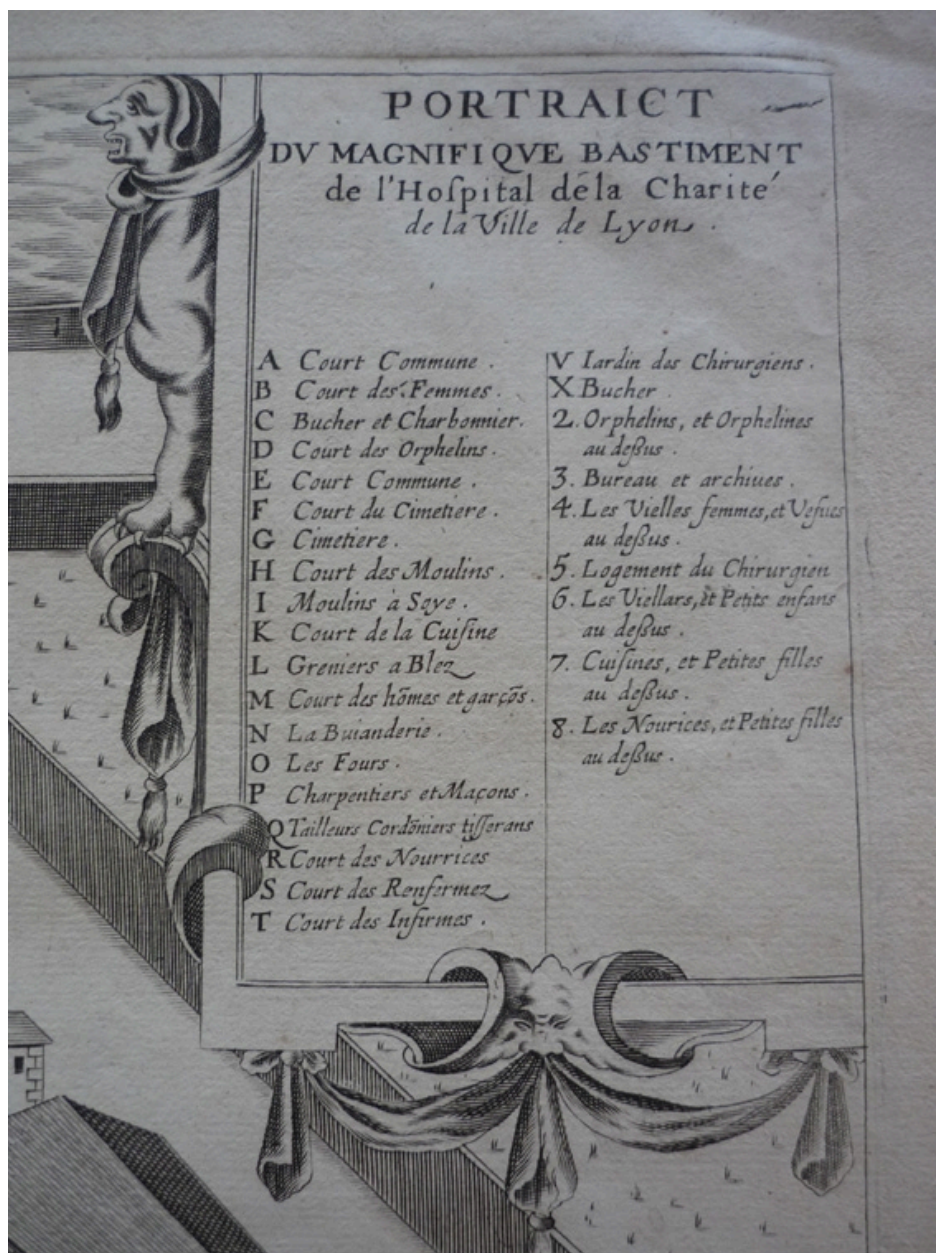 PORTRAICT
DV MAGNIFIQVE BASTIMENT
de l'Hoſpital déla Charité
de la Ville de Lyon.
A Court Commune.
B Court des Femmes.
C Bucher et Charbonnier.
D Court des Orphelins.
E Court Commune.
F Court du Cimetiere.
G Cimetiere.
H Court des Moulins.
I Moulins à Soye.
K Court de la Cuiſine
L Greniers a Blez
M Court des hõmes et garçõs.
N La Buianderie.
O Les Fours.
P Charpentiers et Maçons.
Q Tailleurs Cordõniers tiſſerans
R Court des Nourrices
S Court des Renfermez
T Court des Infirmes.
V Iardin des Chirurgiens.
X Bucher.
2. Orphelins, et Orphelines
au deßus.
3. Bureau et archiues.
4. Les Vielles femmes, et Vefues
au deßus.
5. Logement du Chirurgien
6. Les Viellars, et Petits enfans
au deßus.
7. Cuiſines, et Petites filles
au deßus.
8. Les Nourices, et Petites filles
au deßus.